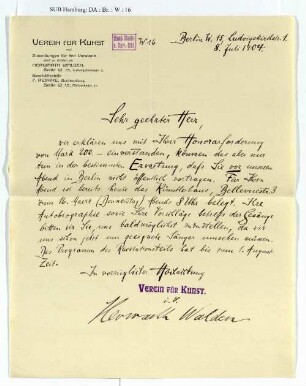 SUB Hamburg: DA : Br. : W : 16
VEREIN FÜR KUNST
W 16
Berlin W. 15, Ludwigkirchstr. 1.
8. Juli 1904.
Sehr geehrter Herr,
wir erklären uns mit Ihrer Honorarforderung
von Mark 200 – einverstanden, können das aber nur
tun in der bestimmten Erwartung, daß Sie vor unserem
Abend in Berlin nicht öffentlich vortragen. Für Ihren
Abend ist bereits heute das Künstlerhaus, Bellevuestr 3
vom (Donnerstag) Abends 8 Uhr belegt. Ihre
Autobiographie sowie Ihre Vorschläge behufs der Gesänge
bitten wir Sie, uns baldmöglichst zuzustellen, da wir
uns schon jetzt um geeignete Sänger umsehen müssen.
Das Programm des hat bis zum 1. August
Zeit.
In vorzüglicher Hochachtung
VEREIN FÜR KUNST.
i. V.
Herwarth Walden